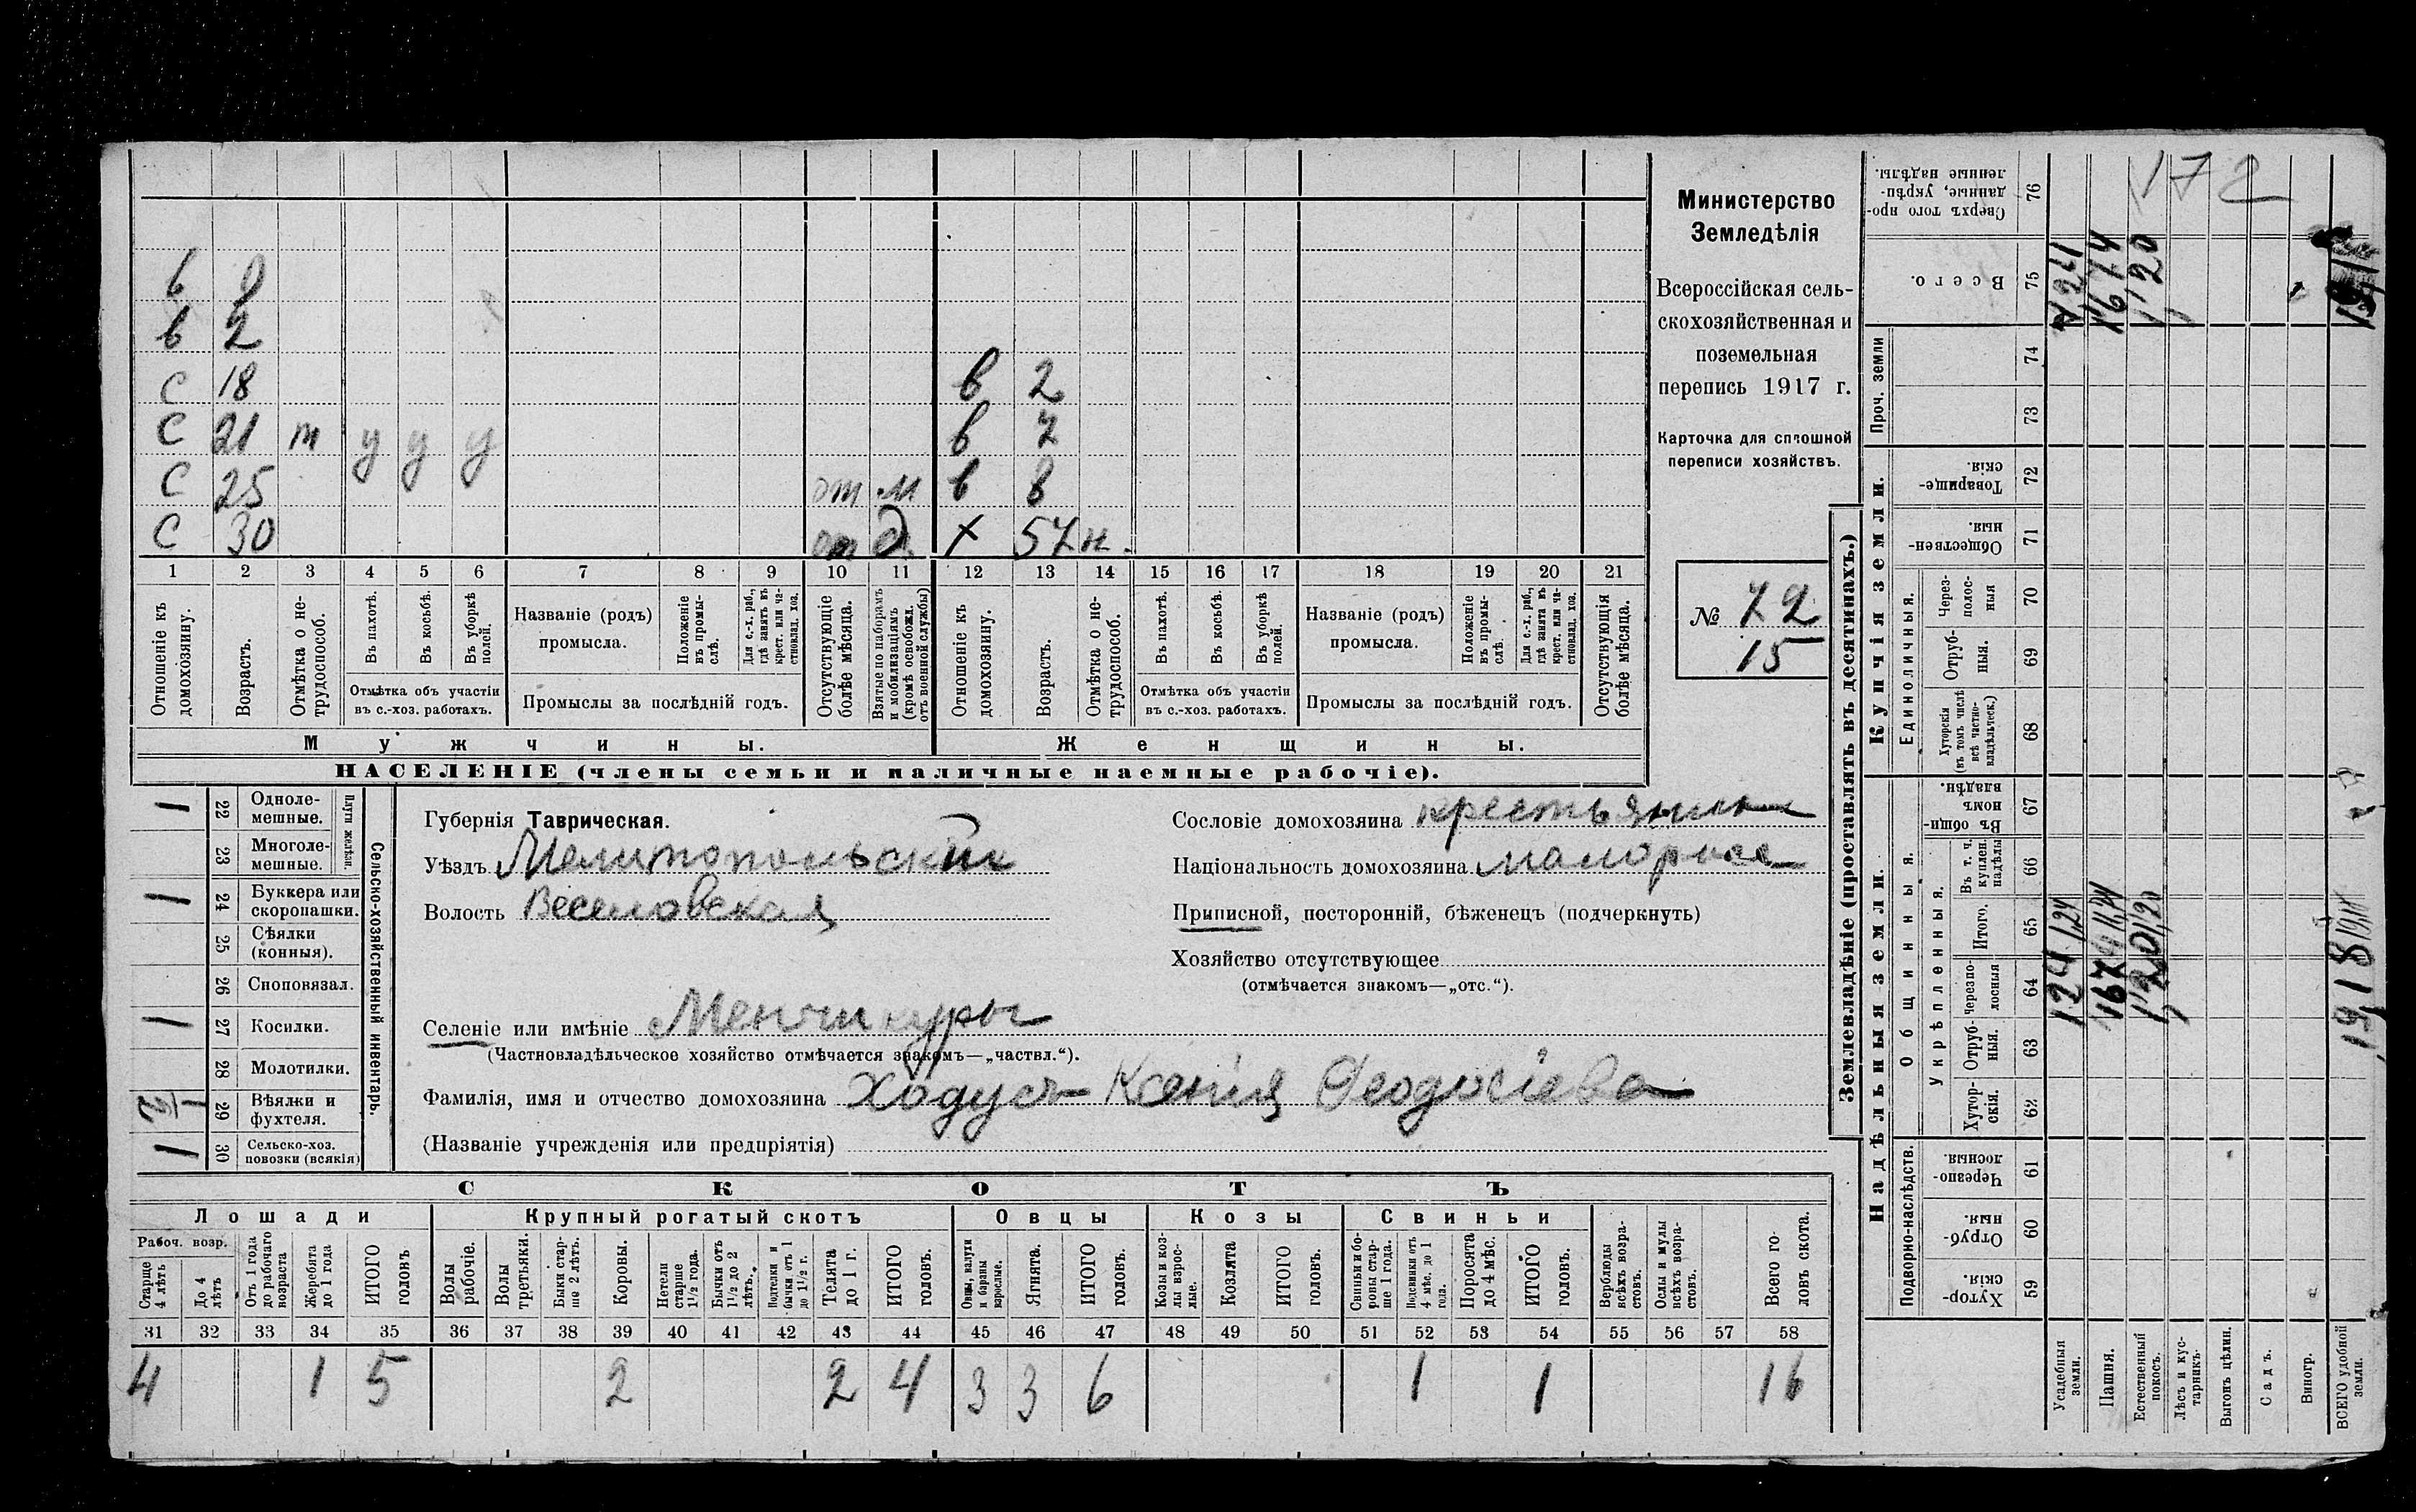 в
в 2
с 18
в 2
с 21 т у у у
в 7
с 25 от м
в 8
с 30 от
х 57 н.
1 2 3 4 5 6 7 8 9 10 11 12 13 14 15 16 17 18 19 20 21
Отношеніе къ домохозяину.
Возрастъ.
Отмѣтка о не-трудоспособ.
Въ пахотѣ.
Въ косьбѣ.
Въ уборкѣ полей.
Отмѣтка объ участіи въ с.-хоз. работахъ.
Названіе (родъ) промысла.
Положеніе въ промы-слѣ.
Для с.-х. раб., гдѣ занятъ въ крест. или ча-стновлад. хоз.
Промыслы за послѣдній годъ.
Отсутствующіе болѣе мѣсяца.
Взятые по наборамъ и мобилизаціямъ (кромѣ освобожд. отъ военной службы)
Отношеніе къ домохозяину.
Возрастъ.
Отмѣтка о не-трудоспособ.
Въ пахотѣ.
Въ косьбѣ.
Въ уборкѣ полей.
Отмѣтка объ участіи въ с.-хоз. работахъ.
Названіе (родъ) промысла.
Положеніе въ промы-слѣ.
Для с.-х. раб., гдѣ занята въ крест. или ча-стновлад. хоз.
Промыслы за послѣдній годъ.
Отсутствующія болѣе мѣсяца.
Мужчины.
Женщины.
НАСЕЛЕНІЕ (члены семьи и наличные наемные рабочіе).
Министерство
Земледѣлія
Всероссійская сель-
скохозяйственная и
поземельная
перепись 1917 г.
Карточка для сплошной
переписи хозяйствъ.
№ 72
15
1 22 Одноле-мешные.
23 Многоле-мешные.
Плуги желѣзн.
1 24 Буккера или скоропашки.
25 Сѣялки (конныя).
26 Сноповязал.
1 27 Косилки.
28 Молотилки.
1/2 29 Вѣялки и фухтеля.
1 30 Сельско-хоз. повозки (всякія)
Сельско-хозяйственный инвентарь.
Губернія Таврическая.
Уѣздъ Мелитопольскій
Волость Веселовская
Селеніе или имѣніе Менчикуры
(Частновладѣльческое хозяйство отмѣчается знакомъ—„частвл.“).
Фамилія, имя и отчество домохозяина Ходусъ Ксенія Феодосіева
(Названіе учрежденія или предпріятія)
Сословіе домохозяина крестьянинъ
Національность домохозяина малоросс
Приписной, посторонній, бѣженецъ (подчеркнуть)
Хозяйство отсутствующее
(отмѣчается знакомъ—„отс.“).
СКОТЪ
Лошади
Крупный рогатый скотъ
Овцы
Козы
Свиньи
Рабоч. возр.
Старше 4 лѣтъ
До 4 лѣтъ
Отъ 1 года до рабочаго возраста
Жеребята до 1 года
ИТОГО головъ
Волы рабочіе.
Волы третьяки.
Быки стар-ше 2 лѣтъ.
Коровы.
Нетели старше 1½ года.
Бычки отъ 1½ до 2 лѣтъ.
Подтелки и бычки отъ 1 до 1½ г.
Телята до 1 г.
ИТОГО головъ.
Овцы, валухи и бараны взрослые.
Ягнята.
ИТОГО головъ.
Козы и коз-лы взрос-лые.
Козлята
ИТОГО головъ.
Свиньи и бо-ровы стар-ше 1 года.
Подсвинки отъ 4 мѣс. до 1 года.
Поросята до 4 мѣс.
ИТОГО головъ.
Верблюды всѣхъ возра-стовъ.
Ослы и мулы всѣхъ возра-стовъ.
Всего го-ловъ скота.
31 32 33 34 35 36 37 38 39 40 41 42 43 44 45 46 47 48 49 50 51 52 53 54 55 56 57 58
4 1 5 2 2 4 3 3 6 1 1 16
Землевладѣніе (проставлять въ десятинахъ.)
Надѣльныя земли.
Купчія земли.
Проч. земли
Подворно-наслѣдств.
Общинныя.
Укрѣпленныя.
Единоличныя.
Хутор-скія. 59
Отруб-ныя. 60
Черезпо-лосныя. 61
Хутор-скія. 62
Отруб-ныя. 63
Черезпо-лосныя 64
Итого. 65
Въ т. ч. куплен. надѣлы 66
Въ общи-номъ владѣн. 67
Хуторскія (въ томъ числѣ всѣ частно-владѣльческ.) 68
Отруб-ныя. 69
Через-полос-ныя 70
Обществен-ныя. 71
Товарище-скія. 72
73
74
Всего. 75
Сверхъ того про-данные, укрѣп-ленные надѣлы. 76
172
Усадебныя земли. 124 1,24 124
Пашня. 1674 1674
Естественный покосъ. 1,20 1,20 1,20
Лѣсъ и кус-тарникъ.
Выгонъ цѣлин.
Садъ.
Виногр.
ВСЕГО удобной земли. 1918